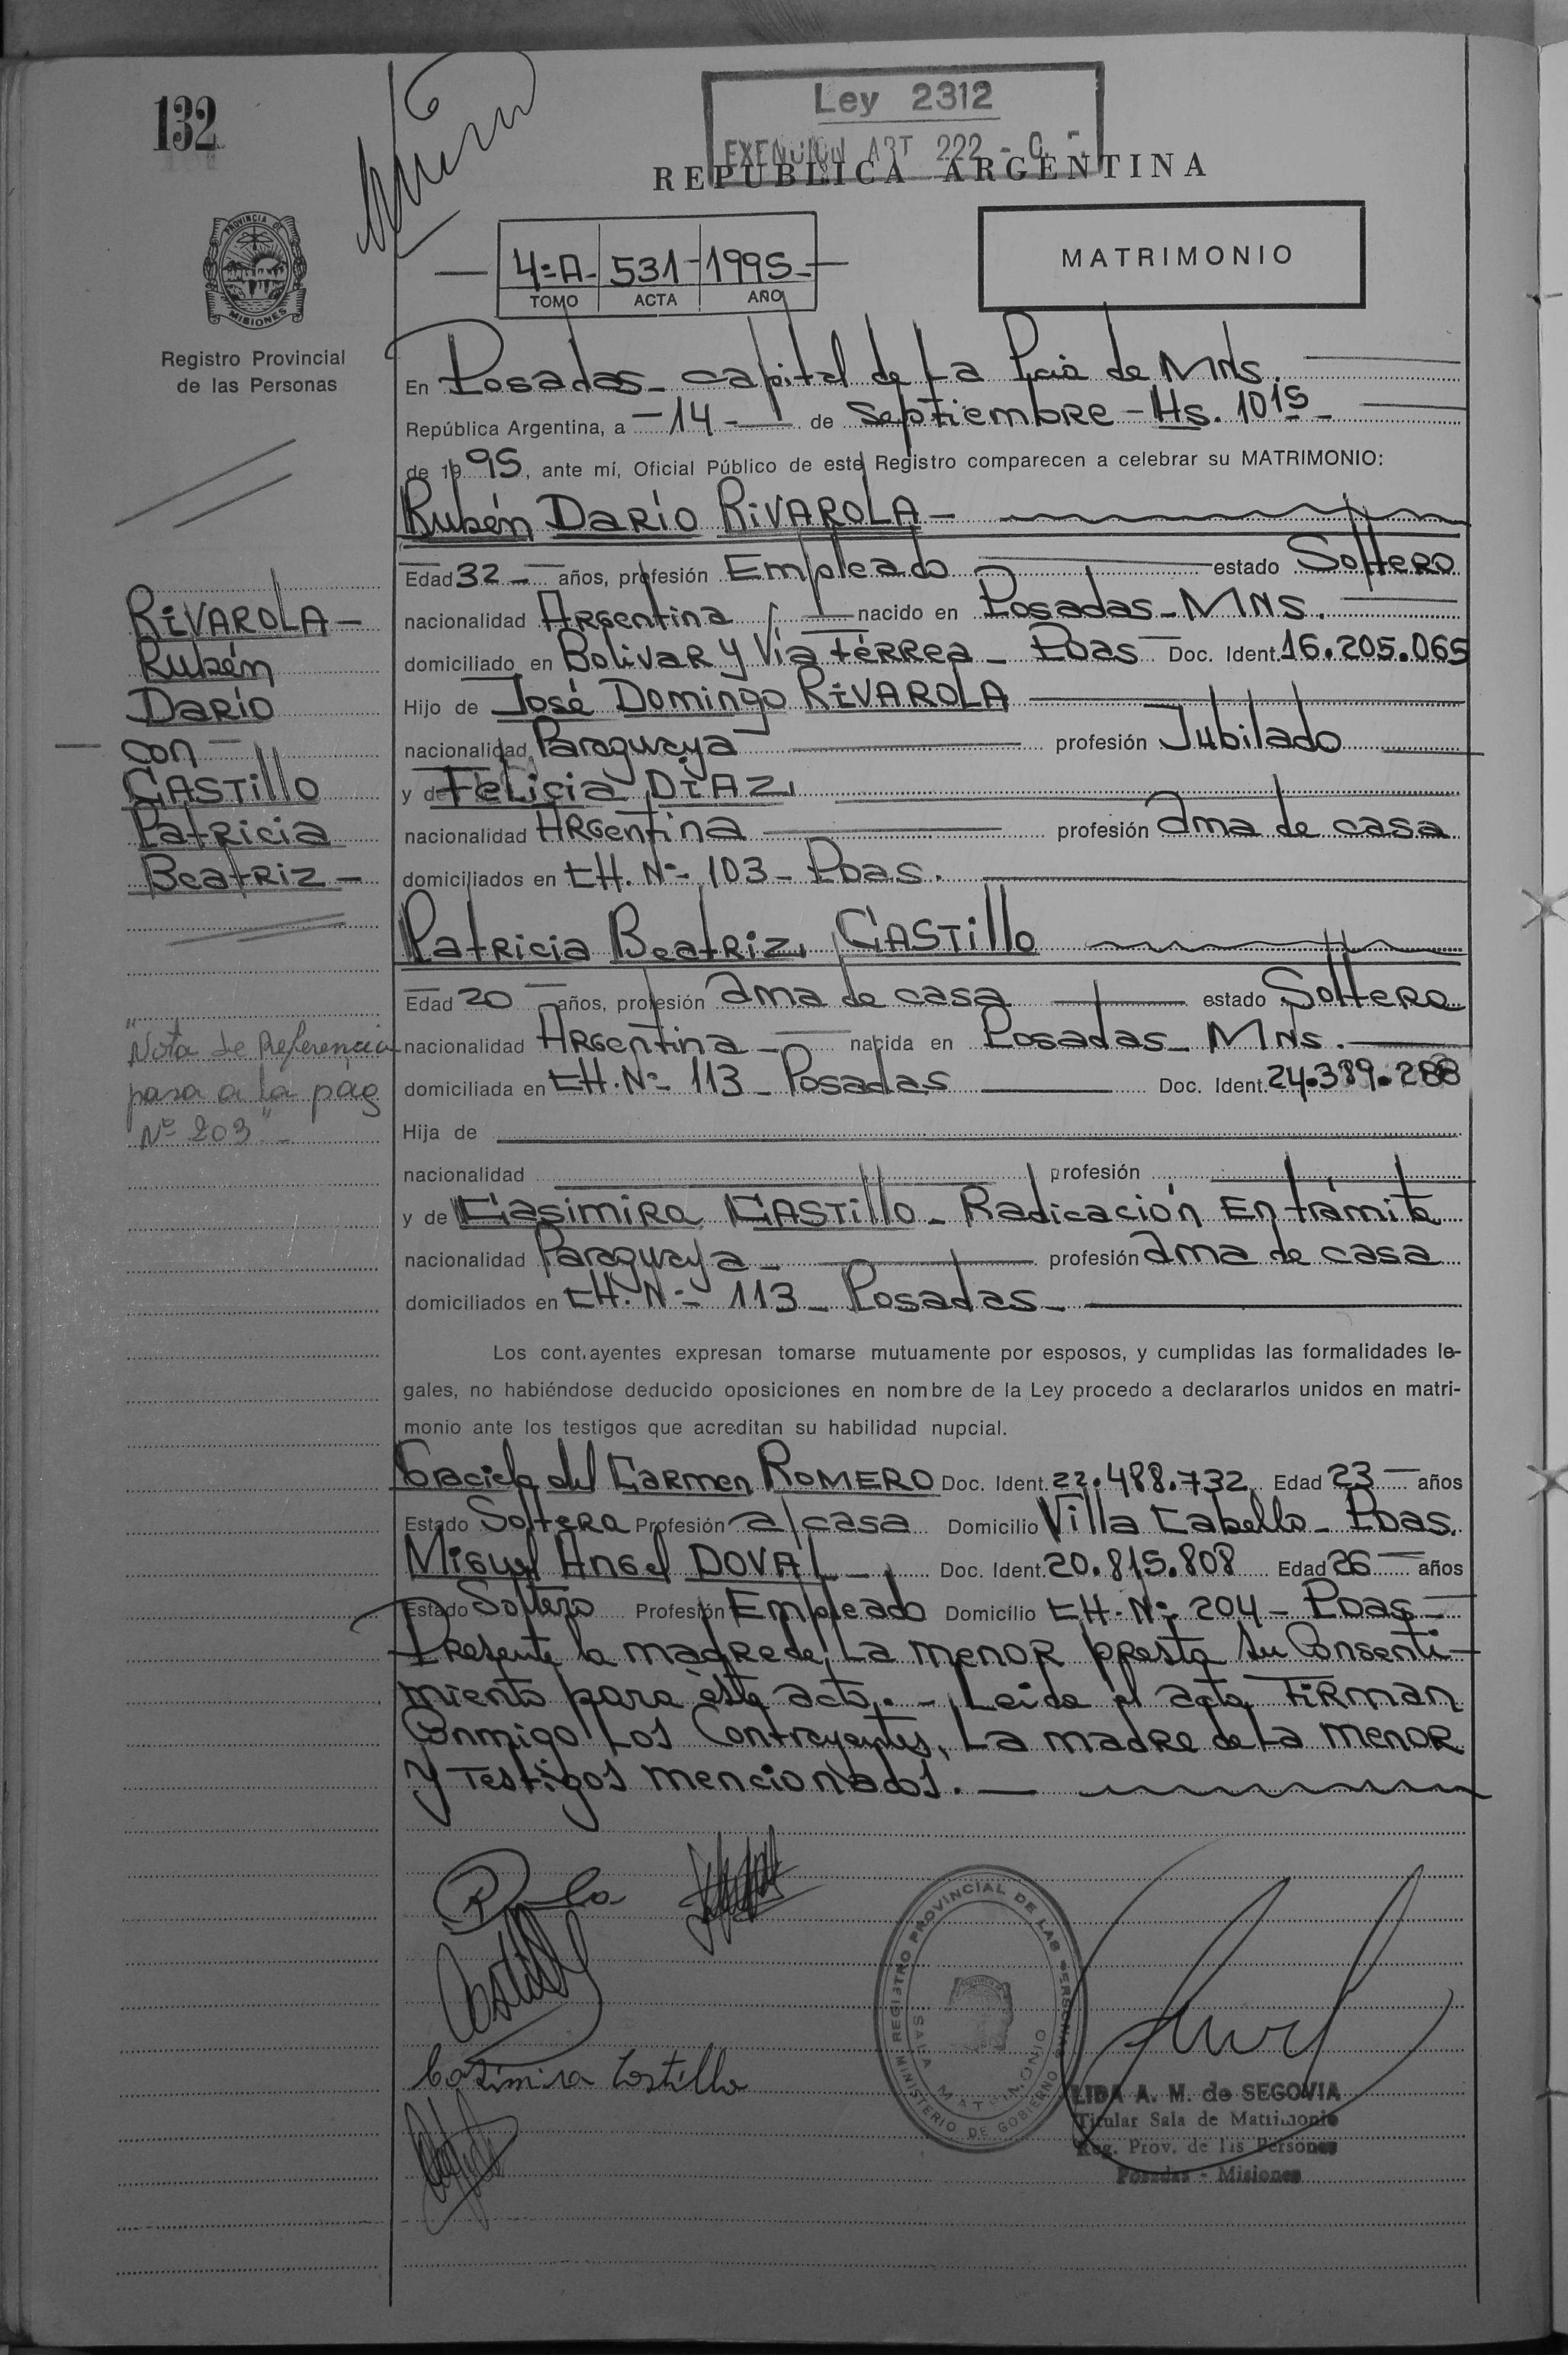 132
Ley 2312
EXENCION ART 222 - C. F.
REPUBLICA ARGENTINA
PROVINCIA DE
MISIONES
Registro Provincial
de las Personas
4=A- 531- 1995-
TOMO ACTA AÑO
MATRIMONIO
En Posadas- capital de La Pcia de Mns.
República Argentina, a -14- de Septiembre - Hs. 10 15 -
de 19 95, ante mí, Oficial Público de este Registro comparecen a celebrar su MATRIMONIO:
Rubén Darío RIVAROLA -
Edad 32 - años, profesión Empleado estado Soltero
nacionalidad Argentina nacido en Posadas - MNS.
domiciliado en Bolivar y Vía Férrea - Pdas Doc. Ident. 16.205.065
Hijo de José Domingo RIVAROLA
nacionalidad Paraguaya profesión Jubilado
y de Felicia DIAZ
nacionalidad Argentina profesión ama de casa
domiciliados en CH. Nº 103 - Pdas.
Patricia Beatriz CASTILLO
Edad 20 años, profesión ama de casa estado Soltera
nacionalidad Argentina - nacida en Posadas - MNS.
domiciliada en CH. Nº 113 - Posadas Doc. Ident. 24.389.288
Hija de
nacionalidad profesión
y de Casimira CASTILLO - Radicación En trámite
nacionalidad Paraguaya - profesión ama de casa
domiciliados en CH. Nº 113 - Posadas -
RIVAROLA -
Rubén
Darío
- con -
CASTILLO
Patricia
Beatriz -
"Nota de Referencia
pasa a la pág
Nº 203" -
Los contrayentes expresan tomarse mutuamente por esposos, y cumplidas las formalidades le-
gales, no habiéndose deducido oposiciones en nombre de la Ley procedo a declararlos unidos en matri-
monio ante los testigos que acreditan su habilidad nupcial.
Graciela del Carmen ROMERO Doc. Ident. 22.488.732 Edad 23 - años
Estado Soltera Profesión a/casa Domicilio Villa Cabello - Pdas.
Miguel Angel DOVAL - Doc. Ident. 20.815.808 Edad 26 - años
Estado Soltero Profesión Empleado Domicilio CH. Nº 204 - Pdas -
Presente la madre de La menor presta su Consenti-
miento para éste acto. - Leida el acta FIRMAN
Conmigo Los Contrayentes, La madre de La menor
y Testigos mencionados. -
Castillo
Casimira Castillo
REGISTRO PROVINCIAL DE LAS PERSONAS
SALA MATRIMONIO
MINISTERIO DE GOBIERNO
LIDA A. M. de SEGOVIA
Titular Sala de Matrimonio
Reg. Prov. de las Personas
Posadas - Misiones